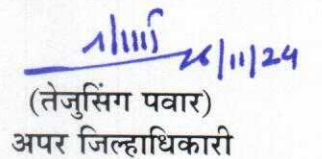 26/11/24
(तेजुसिंग पवार)
अपर जिल्हाधिकारी